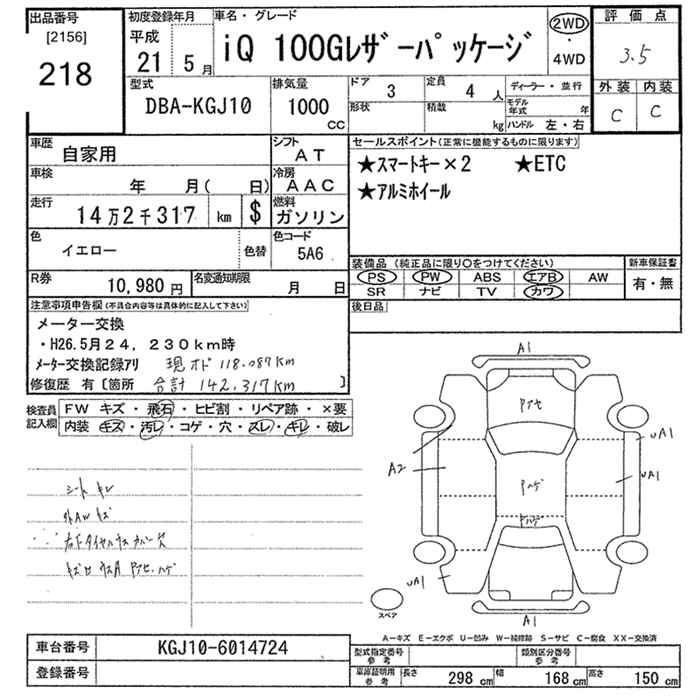 出品番号
[2156]
218
初度登録年月
平成
21 5月
車名・グレード
iQ 100Gﾚｻﾞｰﾊﾟｯｹｰｼﾞ
2WD
・
4WD
評価点
3.5
外装 内装
C C
型式
DBA-KGJ10
排気量
1000
CC
ドア
3
定員
4 人
ディーラー・並行
形状
積載
kg
モデル年式 年
ハンドル 左・右
車歴
自家用
シフト
AT
車検
年 月( 日)
冷房
AAC
走行
14万2千317 km $
燃料
ガソリン
色
イエロー
色替
色コード
5A6
R券
10,980円
名変通知期限
月 日
セールスポイント(正常に機能するものに限ります)
★ｽﾏｰﾄｷｰ×2 ★ETC
★ｱﾙﾐﾎｲｰﾙ
装備品 (純正品に限り○をつけてください)
新車保証書
PS PW ABS エアB AW
有・無
SR ナビ TV カワ
後日品
注意事項申告欄(不具合内容等は具体的に記入して下さい)
メーター交換
・H26.5月24,230km時
ﾒｰﾀｰ交換記録ｱﾘ 現オド 118.087Km
修復歴 有〔箇所 合計 142.317Km 〕
検査員
記入欄
FW キズ・飛石・ヒビ割・リペア跡・×要
内装 キズ・汚レ・コゲ・穴・スレ・キレ・破レ
シート キレ
外AW キズ
A1
Pアセ
A2
UA1
Pハゲ
UA1
Pハゲ
UA1
A1
スペア
A−キズ E−エクボ U−凹み W−補修跡 S−サビ C−腐食 XX−交換済
車台番号
KGJ10-6014724
登録番号
型式指定番号
参考
類別区分番号
参考
車庫証明用
参考
長さ 298 cm 幅 168 cm 高さ 150 cm